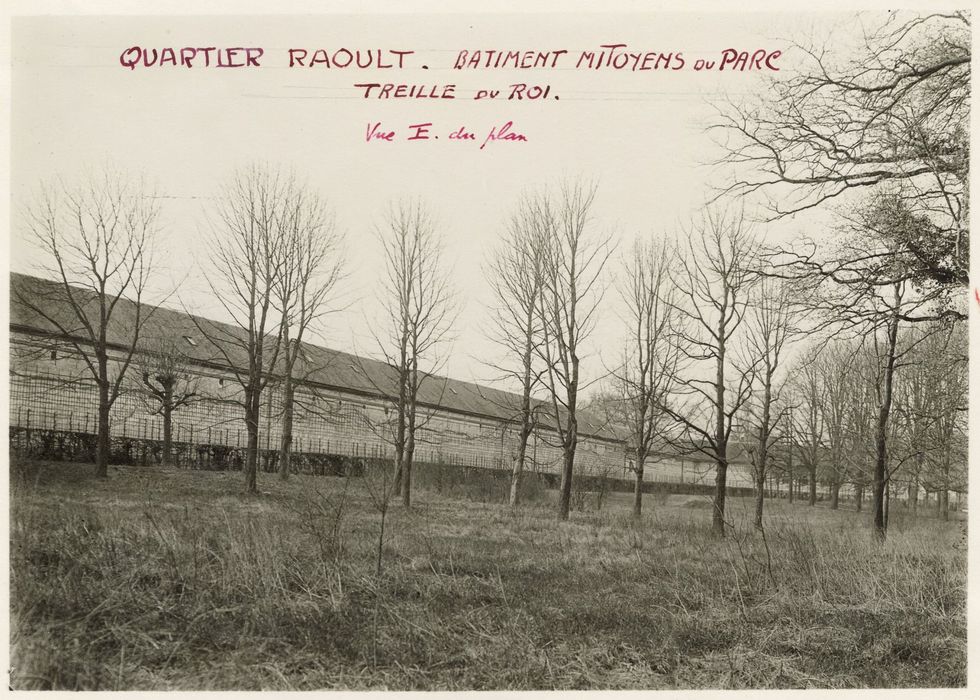 QUARTIER RAOULT. BATIMENT MITOYENS DU PARC
TREILLE DU ROI.
Vue E. du plan